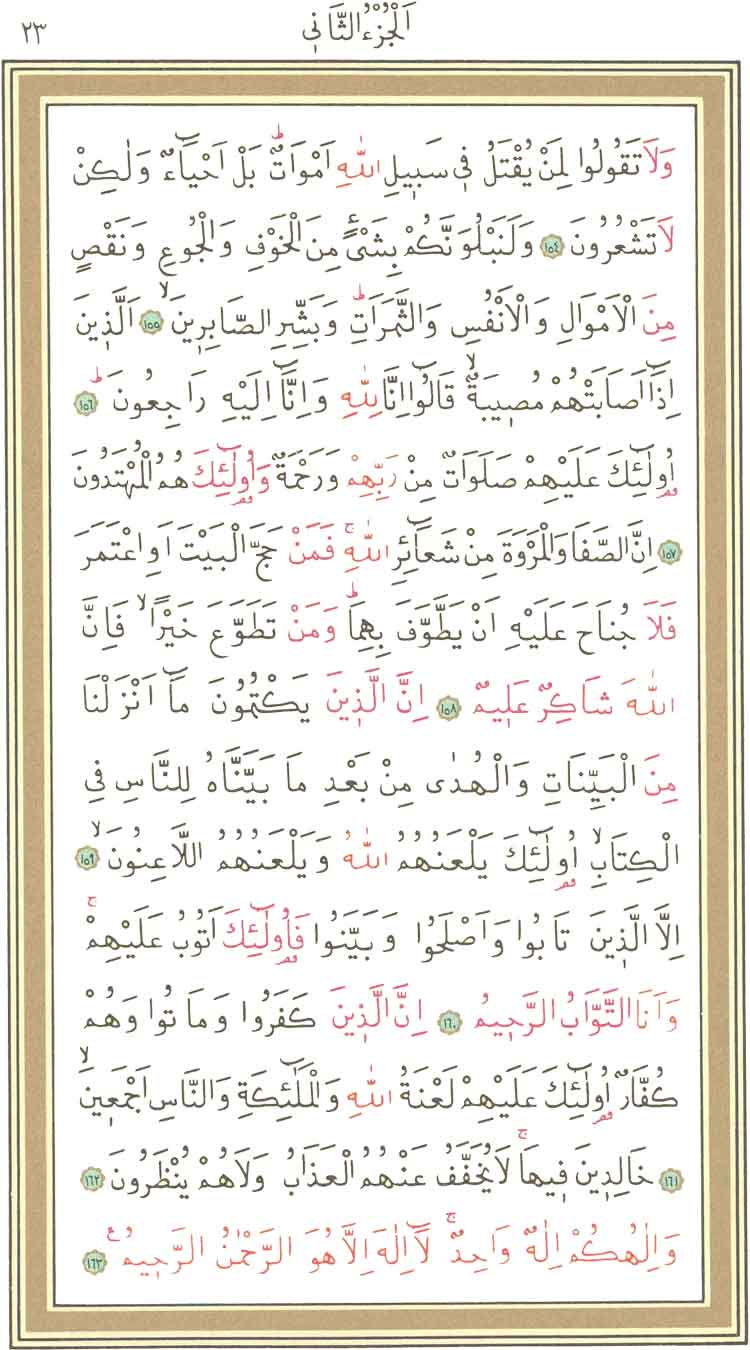 اَلْجُزْءُ الثَّانٖى ٢٣
وَلَا تَقُولُوا لِمَنْ يُقْتَلُ فٖى سَبٖيلِ اللّٰهِ اَمْوَاتٌۜ بَلْ اَحْيَٓاءٌ وَلٰكِنْ
لَا تَشْعُرُونَ ١٥٤ وَلَنَبْلُوَنَّكُمْ بِشَیْءٍ مِنَ الْخَوْفِ وَالْجُوعِ وَنَقْصٍ
مِنَ الْاَمْوَالِ وَالْاَنْفُسِ وَالثَّمَرَاتِۜ وَبَشِّرِ الصَّابِرٖينَۙ ١٥٥ اَلَّذٖينَ
اِذَٓا اَصَابَتْهُمْ مُصٖيبَةٌۙ قَالُٓوا اِنَّا لِلّٰهِ وَاِنَّٓا اِلَيْهِ رَاجِعُونَۜ ١٥٦
اُو۬لٰٓئِكَ عَلَيْهِمْ صَلَوَاتٌ مِنْ رَبِّهِمْ وَرَحْمَةٌ وَاُو۬لٰٓئِكَ هُمُ الْمُهْتَدُونَ
١٥٧ اِنَّ الصَّفَا وَالْمَرْوَةَ مِنْ شَعَٓائِرِ اللّٰهِۚ فَمَنْ حَجَّ الْبَيْتَ اَوِ اعْتَمَرَ
فَلَا جُنَاحَ عَلَيْهِ اَنْ يَطَّوَّفَ بِهِمَاۜ وَمَنْ تَطَوَّعَ خَيْرًاۙ فَاِنَّ
اللّٰهَ شَاكِرٌ عَلٖيمٌ ١٥٨ اِنَّ الَّذٖينَ يَكْتُمُونَ مَٓا اَنْزَلْنَا
مِنَ الْبَيِّنَاتِ وَالْهُدٰى مِنْ بَعْدِ مَا بَيَّنَّاهُ لِلنَّاسِ فِى
الْكِتَابِۙ اُو۬لٰٓئِكَ يَلْعَنُهُمُ اللّٰهُ وَيَلْعَنُهُمُ اللَّاعِنُونَۙ ١٥٩
اِلَّا الَّذٖينَ تَابُوا وَاَصْلَحُوا وَبَيَّنُوا فَاُو۬لٰٓئِكَ اَتُوبُ عَلَيْهِمْۚ
وَاَنَا التَّوَّابُ الرَّحٖيمُ ١٦٠ اِنَّ الَّذٖينَ كَفَرُوا وَمَاتُوا وَهُمْ
كُفَّارٌ اُو۬لٰٓئِكَ عَلَيْهِمْ لَعْنَةُ اللّٰهِ وَالْمَلٰٓئِكَةِ وَالنَّاسِ اَجْمَعٖينَۙ
١٦١ خَالِدٖينَ فٖيهَاۚ لَا يُخَفَّفُ عَنْهُمُ الْعَذَابُ وَلَا هُمْ يُنْظَرُونَ ١٦٢
وَاِلٰهُكُمْ اِلٰهٌ وَاحِدٌۚ لَٓا اِلٰهَ اِلَّا هُوَ الرَّحْمٰنُ الرَّحٖيمُ ع ١٦٣